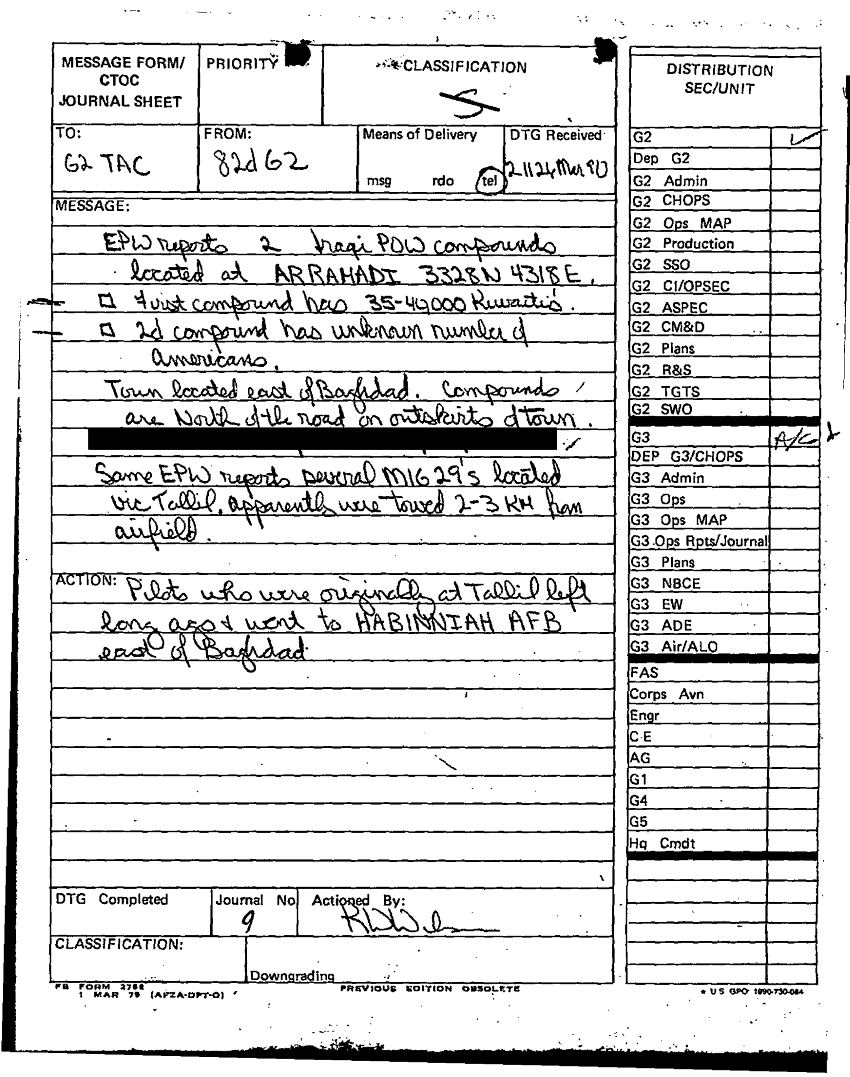 MESSAGE FORM/
CTOC
JOURNAL SHEET
PRIORITY
CLASSIFICATION
S
TO:
G2 TAC
FROM:
82d G2
Means of Delivery
msg rdo tel
DTG Received
MESSAGE:
EPW reports 2 Iraqi POW compounds
located at ARRAHADI 3328N 4318E.
□ first compound has 35-40,000 Kuwaitis.
□ 2d compound has unknown number of
americans.
Town located east of Baghdad. Compounds
are North of the road on outskirts of town.
Same EPW reports several MIG 29's located
vic Tallil, apparently were towed 2-3 KM from
airfield.
ACTION: Pilots who were originally at Tallil left
long ago & went to HABINNIAH AFB
east of Baghdad
DTG Completed
Journal No
9
Actioned By:
CLASSIFICATION:
Downgrading
FB FORM 2788
1 MAR 79 (AFZA-DPT-O)
PREVIOUS EDITION OBSOLETE
DISTRIBUTION
SEC/UNIT
G2 ✓
Dep G2
G2 Admin
G2 CHOPS
G2 Ops MAP
G2 Production
G2 SSO
G2 CI/OPSEC
G2 ASPEC
G2 CM&D
G2 Plans
G2 R&S
G2 TGTS
G2 SWO
G3
DEP G3/CHOPS
G3 Admin
G3 Ops
G3 Ops MAP
G3 Ops Rpts/Journal
G3 Plans
G3 NBCE
G3 EW
G3 ADE
G3 Air/ALO
FAS
Corps Avn
Engr
C E
AG
G1
G4
G5
Hq Cmdt
* U S GPO 1990-730-084